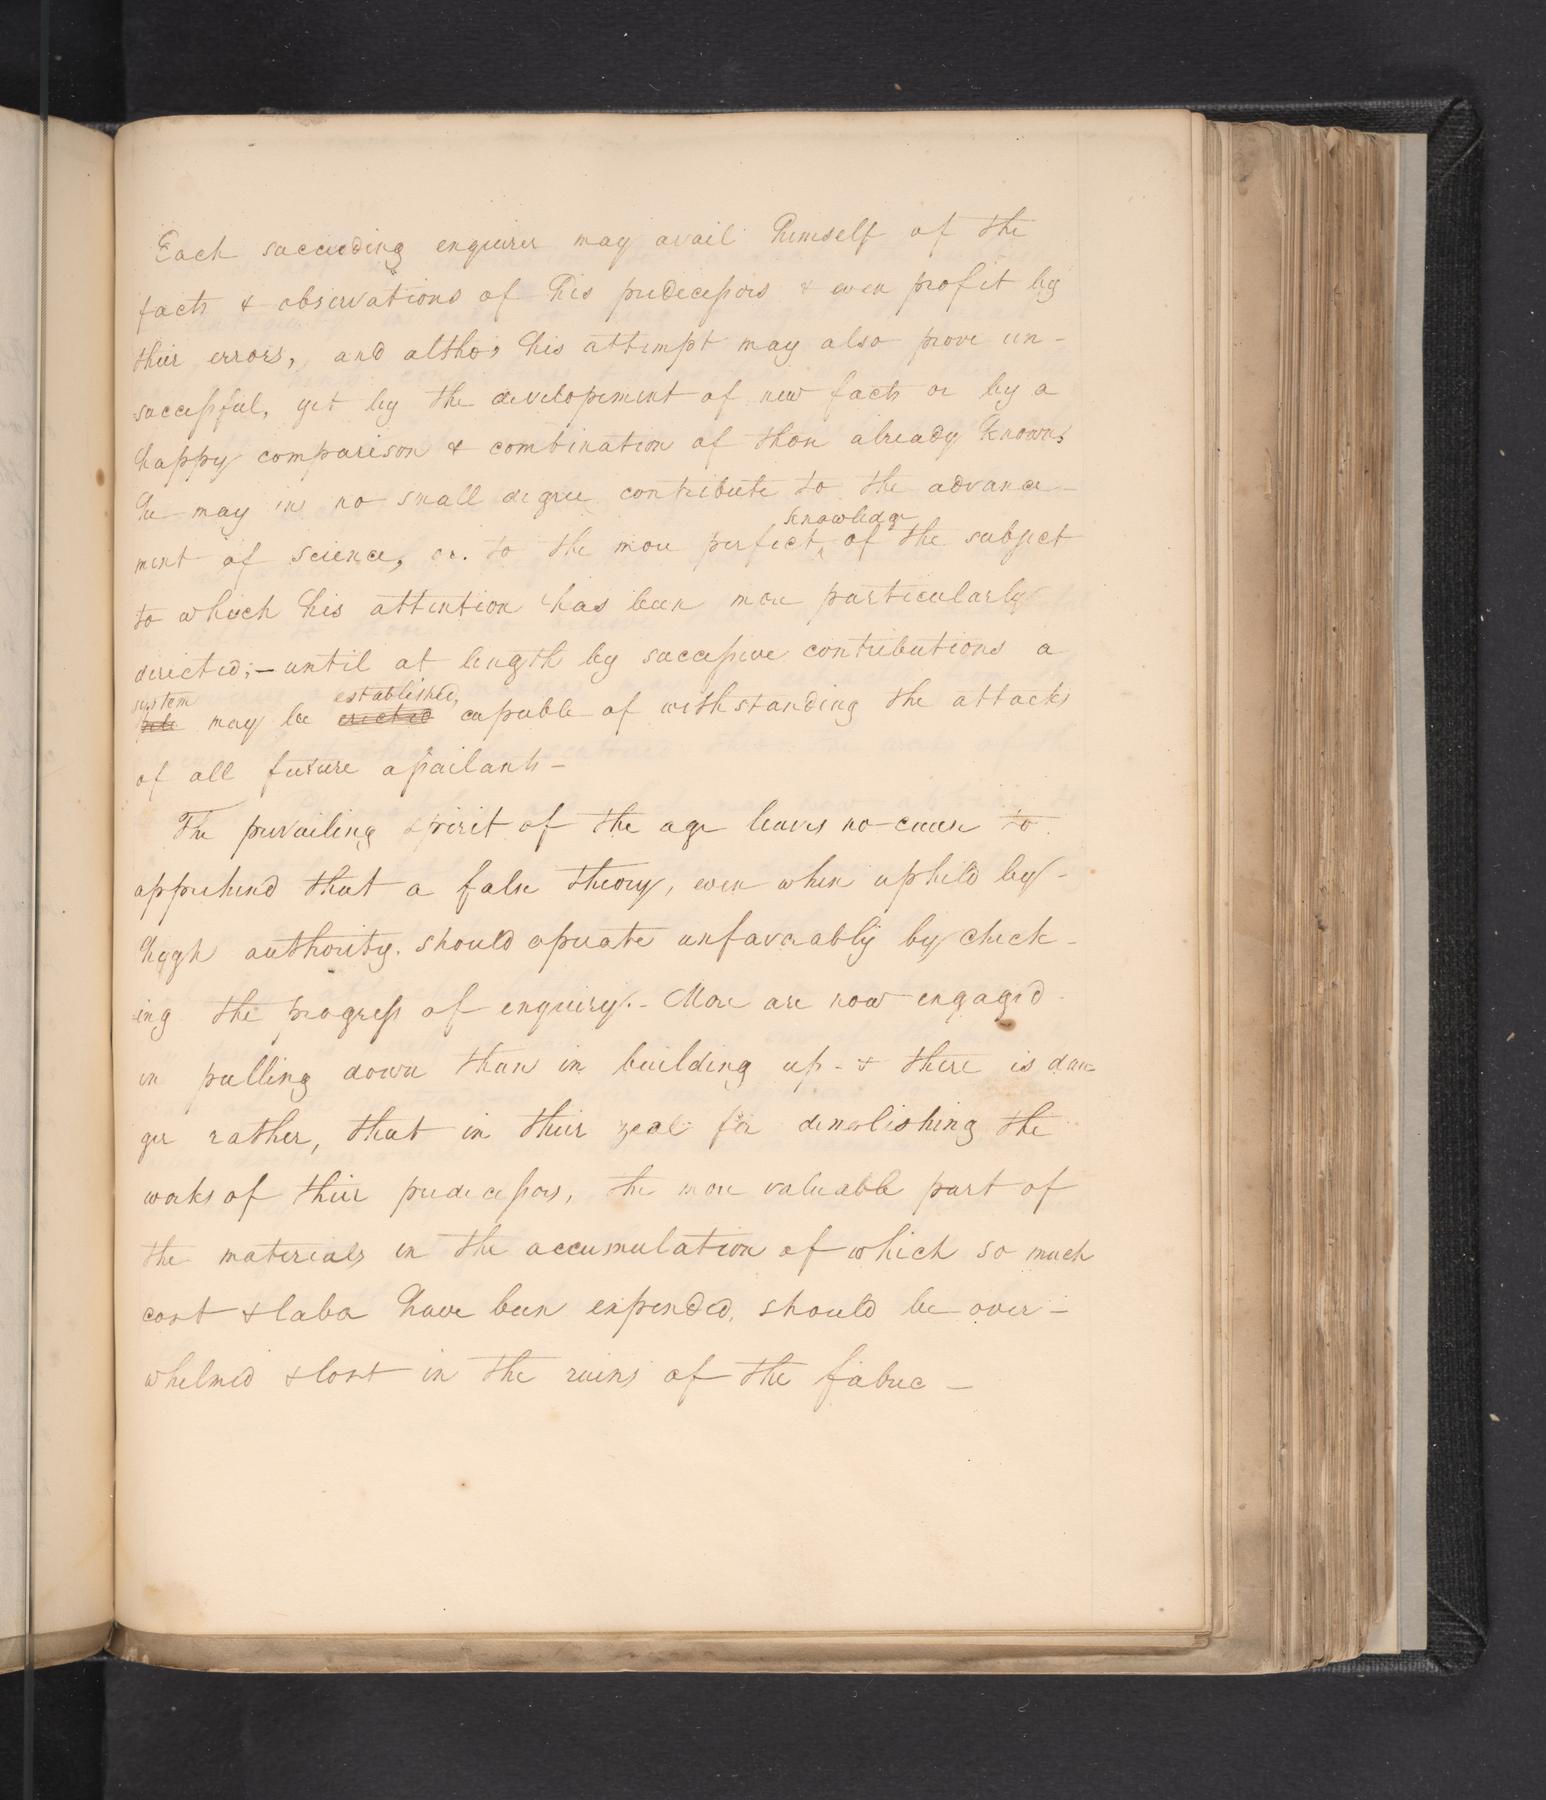 Each succeeding enquirer may avail himself of the
facts & observations of his predecessors & even profit by
their errors, and altho' his attempt may also prove un-
successful, yet by the developement of new facts or by a
happy comparison & combination of those already known,
he may in no small degree contribute to the advance-
ment of science, or to the more perfect knowledge of the subject
to which his attention has been more particularly
directed;- until at length by successive contributions a
system may be established, erected capable of withstanding the attacks
of all future assailants-
The prevailing spirit of the age leaves no cause to
apprehend that a false theory, even when upheld by-
high authority, should operate unfavorably by check-
ing the progress of enquiry.- More are now engaged
in pulling down than in building up - & there is dan-
ger rather, that in their zeal for demolishing the
works of their predecessors, the more valuable part of
the materials in the accumulation of which so much
cost & labor have been expended, should be over-
whelmed & lost in the ruins of the fabric -